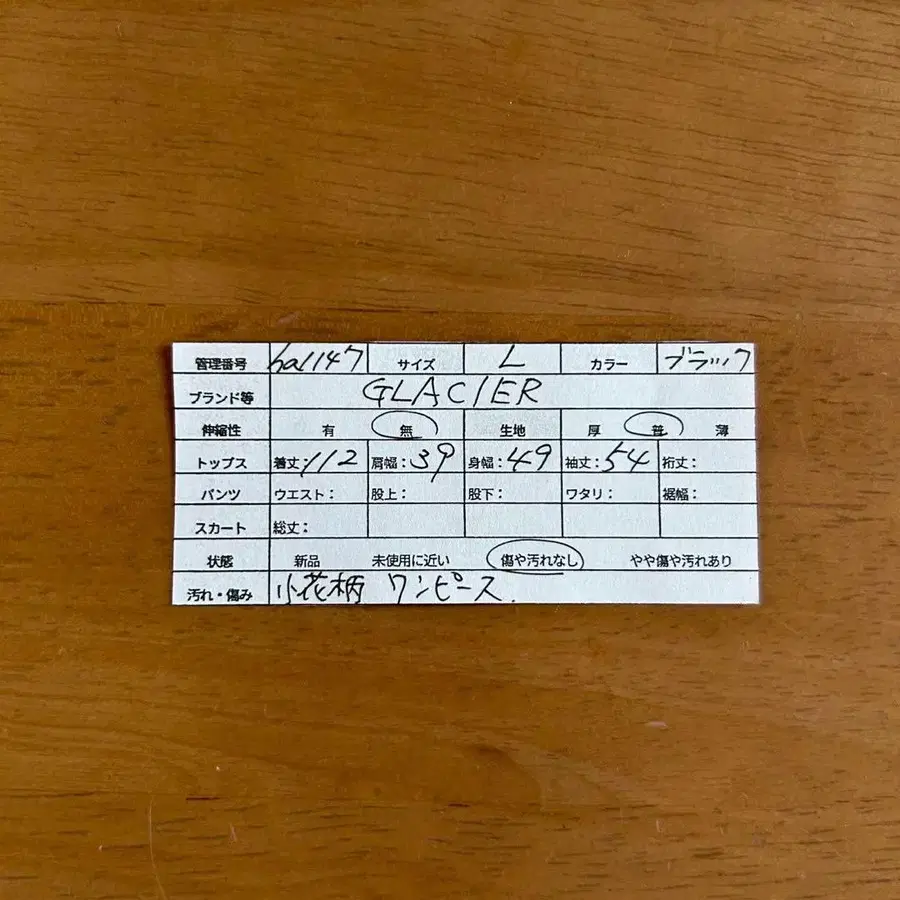 管理番号 hal147 サイズ L カラー ブラック
ブランド等 GLACIER
伸縮性 有 無 生地 厚 普 薄
トップス 着丈:112 肩幅:39 身幅:49 袖丈:54 裄丈:
パンツ ウエスト: 股上: 股下: ワタリ: 裾幅:
スカート 総丈:
状態 新品 未使用に近い 傷や汚れなし やや傷や汚れあり
汚れ・傷み 小花柄 ワンピース.